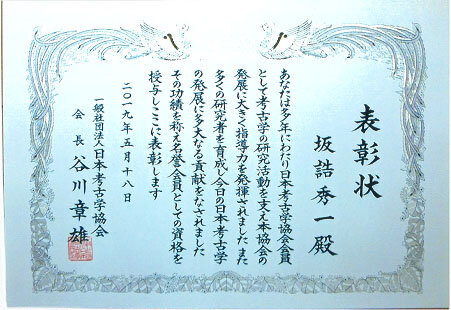 表彰状
坂詰秀一殿
あなたは多年にわたり日本考古学協会会員
として考古学の研究活動を支え本協会の
発展に大きく指導力を発揮されました また
多くの研究者を育成し今日の日本考古学
の発展に多大なる貢献をなされました
その功績を称え名誉会員としての資格を
授与しここに表彰します
二〇一九年五月十八日
一般社団法人日本考古学協会
会長 谷川章雄